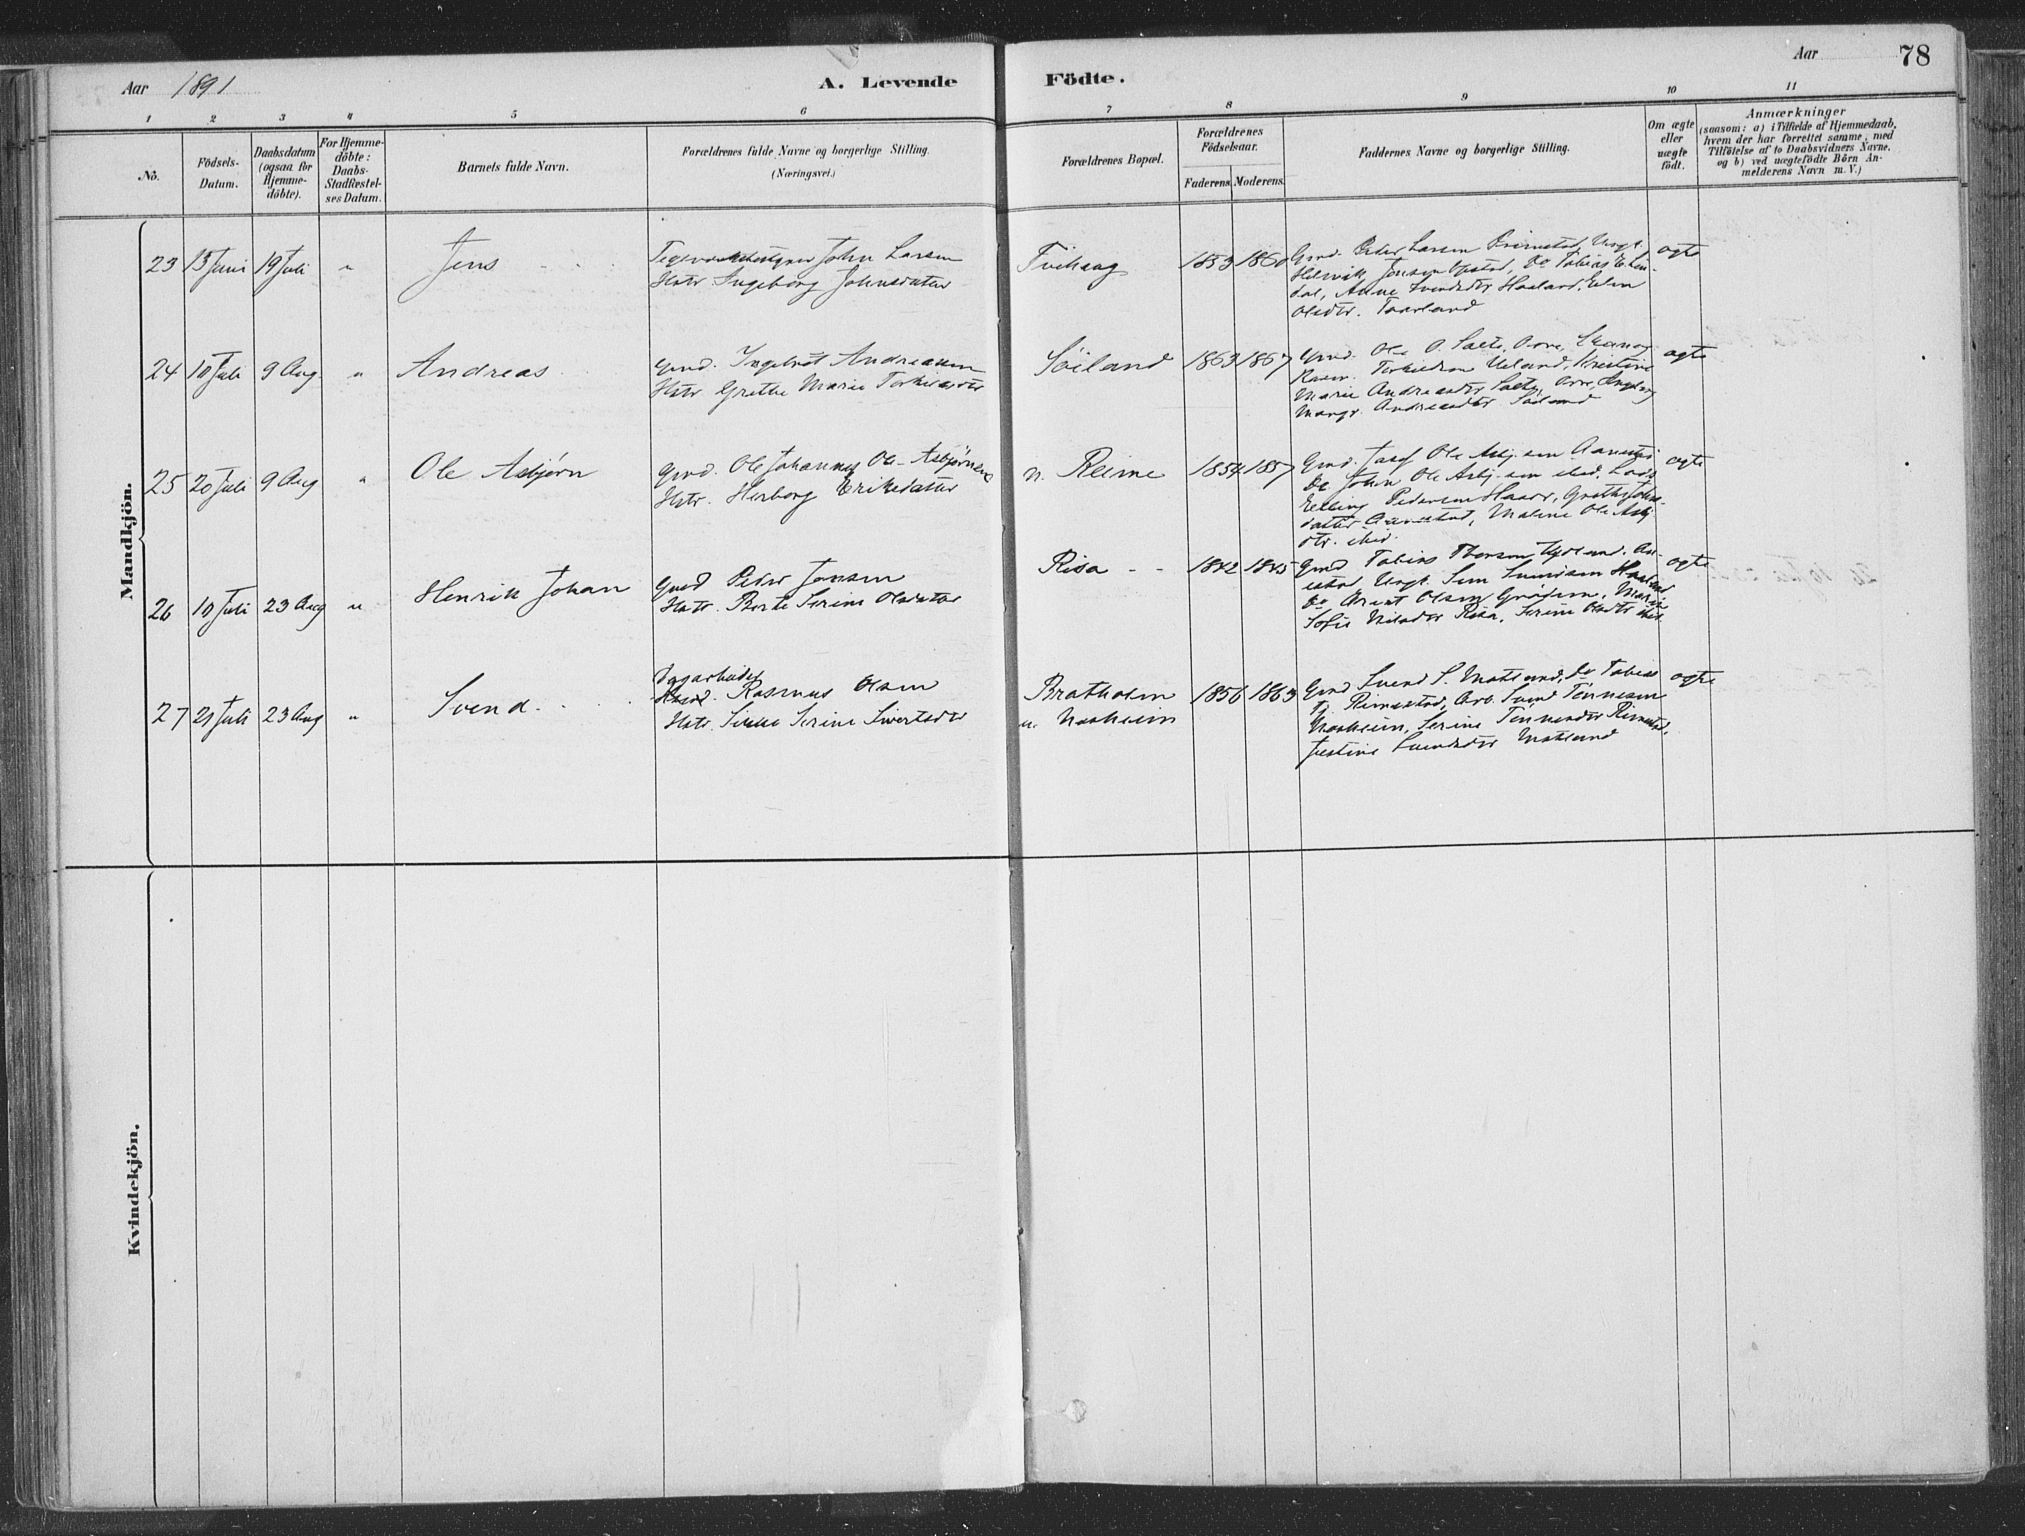 Aar 1891
A. Levende
Födte.
Aar
78
1 2 3 4 5 6 7 8 9 10 11
No.
Födsels-
Datum.
Daabsdatum
(ogsaa for
Hjemme-
döbte).
For Hjemme-
döbte:
Daabs-
Stadfæstel-
ses Datum.
Barnets fulde Navn.
Forældrenes fulde Navne og borgerlige Stilling.
(Næringsvei.)
Forældrenes Bopæl.
Forældrenes
Födselsaar.
Faderens Moderens.
Faddernes Navne og borgerlige Stilling.
Om ægte
eller
uægte
födt.
Anmærkninger
(saasom: a) i Tilfælde af Hjemmedaab,
hvem der har forrettet samme, med
Tilföielse af to Daabsvidners Navne.
og b) ved uægtefödte Börn An-
melderens Navn m. V.)
Mandkjön.
23 13 Juni 19 Juli " Jens
John Larsen
Hstr. Ingeborg Johnsdatter
Tvihaug
1853
Gmd. Peder Larsen
Helvik, Jonsen Opstad, Do Tobias
dal, Anne Svendsdtr Haaland,
Olsdtr. Taarland
ægte
24 10 Juli 9 Aug. " Andreas
Gmd. Ingebret Andreassen
Hstr Grethe Marie Torkelsdtr
Söiland
1863 1867
Gmd. Ole O. Salte, Orre,
Rasm. Torkildsen Ueland, Kristine
Marie Andreasdtr Salte, Orre, Ingeborg
Margr. Andreasdtr. Söiland
ægte
25 20 Juli 9 Aug " Ole Asbjørn
Gmd. Ole Johannes Ole-Asbjørnsen
Hstr. Herborg Eriksdatter
n. Reime
1854 1857
Gmd. Josef Ole Asbj.sen Aanestad
Do John Ole Asbj.sen ibid,
Elling Pedersen Haar, Grethe Johns-
datter Aanestad, Malene Ole Asbj.
dtr. ibid.
ægte
26 10 Juli 23 Aug " Henrik Johan
Gmd Peder Jonsen
Hstr. Berte Serine Olsdatter
Risa
1842 1845
Gmd Tobias Thorsen
Ungk. Sem Svendsen Haaland
Do Arent Olsen Grødem, Marie
Sofie Nilsdtr Risa, Serine Olsdtr ibid.
ægte
27 21 Juli 23 Aug " Svend
Dagarbeider
Gmd. Rasmus Olsen
Hstr. Serine Sivertsdtr
Bratholm
u. Nærheim
1856 1863
Gmd Svend S. Matland, Do Tobias
Tj. Rimestad, Arb. Svend Tönnesen
Nærheim, Serine Tönnesdtr Rimestad,
Justine Svendsdtr Matland
ægte
Kvindekjön.